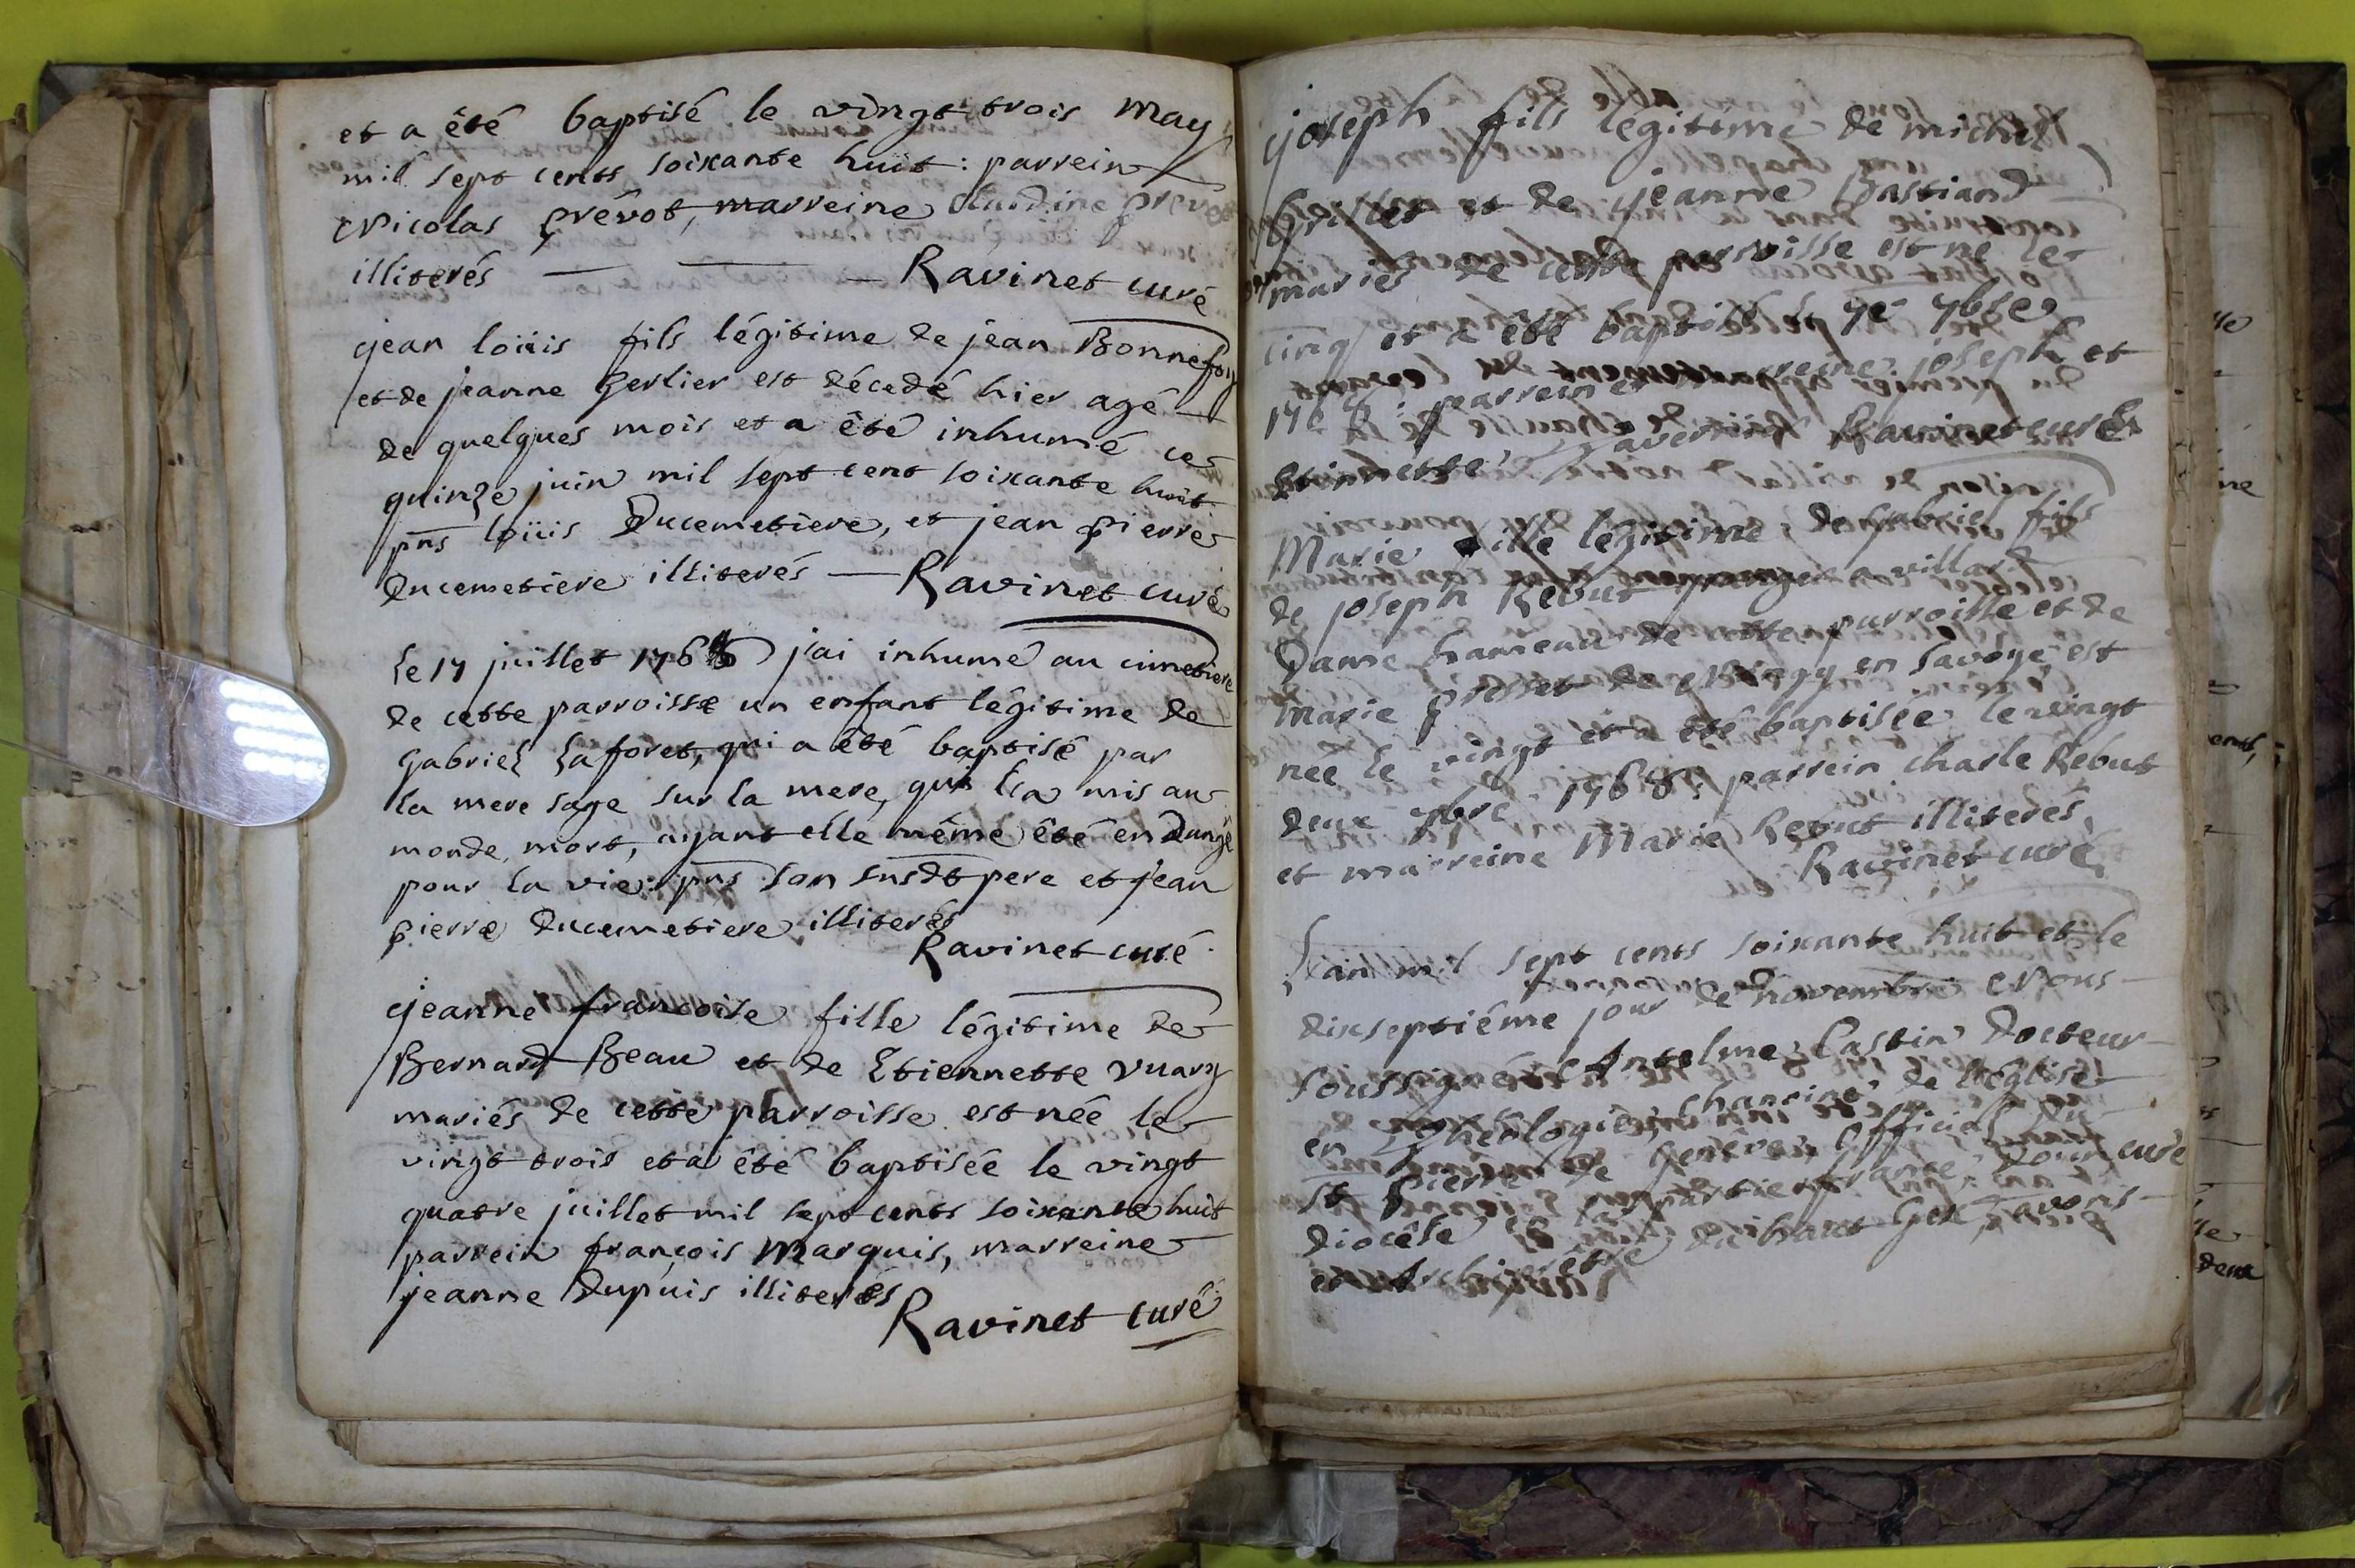 et a êté baptisé le vingt trois may
mil sept cents soixante huit : parrein
Nicolas prévot, marreine Claudine prevot
illiterés — — — Ravinet curé
jean loüis fils légitime de jean Bonnefoy
et de jeanne Gerlier est décedé hier agé
de quelques mois et a êté inhumé ce
quinze juin mil sept cent soixante huit
pns loüis Ducemetiere, et jean pierre
Ducemetiere illiterés — Ravinet curé
Le 17 juillet 1768 j'ai inhumé au cimetiere
de cette parroisse un enfant légitime de
Gabriel Laforet, qui a êté baptisé par
la mere sage sur la mere, qui l'a mis au
monde, mort, ayant elle même êté en Dangé
pour la vie : pns son susdt pere et jean
pierre Ducemetiere illiterés
Ravinet curé
jeanne françoise fille légitime de
Bernard Beau et de Etiennette Vuary
mariés de cette parroisse est née le
vingt trois et a êté baptisée le vingt
quatre juillet mil sept cents soixante huit
parrein françois Marquis, marreine
jeanne Dupuis illiterés
Ravinet curé
joseph fils légitime de michel
et de jeanne Bastiand
mariés de cette parroisse est né le
cinq et a êté baptisé le 7e 7bre
1768 : parrein et marreine joseph et
Etiennette Ravinet curé
Marie fille légitime de Gabriel fils
de joseph Rebut a villard
Dame hameau de cette parroisse et de
Marie presset de en Savoye est
née le vingt et a êté baptisée le vingt
deux 7bre 1768 : parrein charle Rebut
et marreine Marie Rebut illiterés
Ravinet curé
L'an mil sept cents soixante huit et le
dixseptiéme jour de novembre Nous
soussigné Anselme Castin Docteur
en Théologie, chanoine de l'Eglise
St Pierre de Genève, Official du
diocêse la partie france, curé
et Archiprêtre du haut Gex, avons